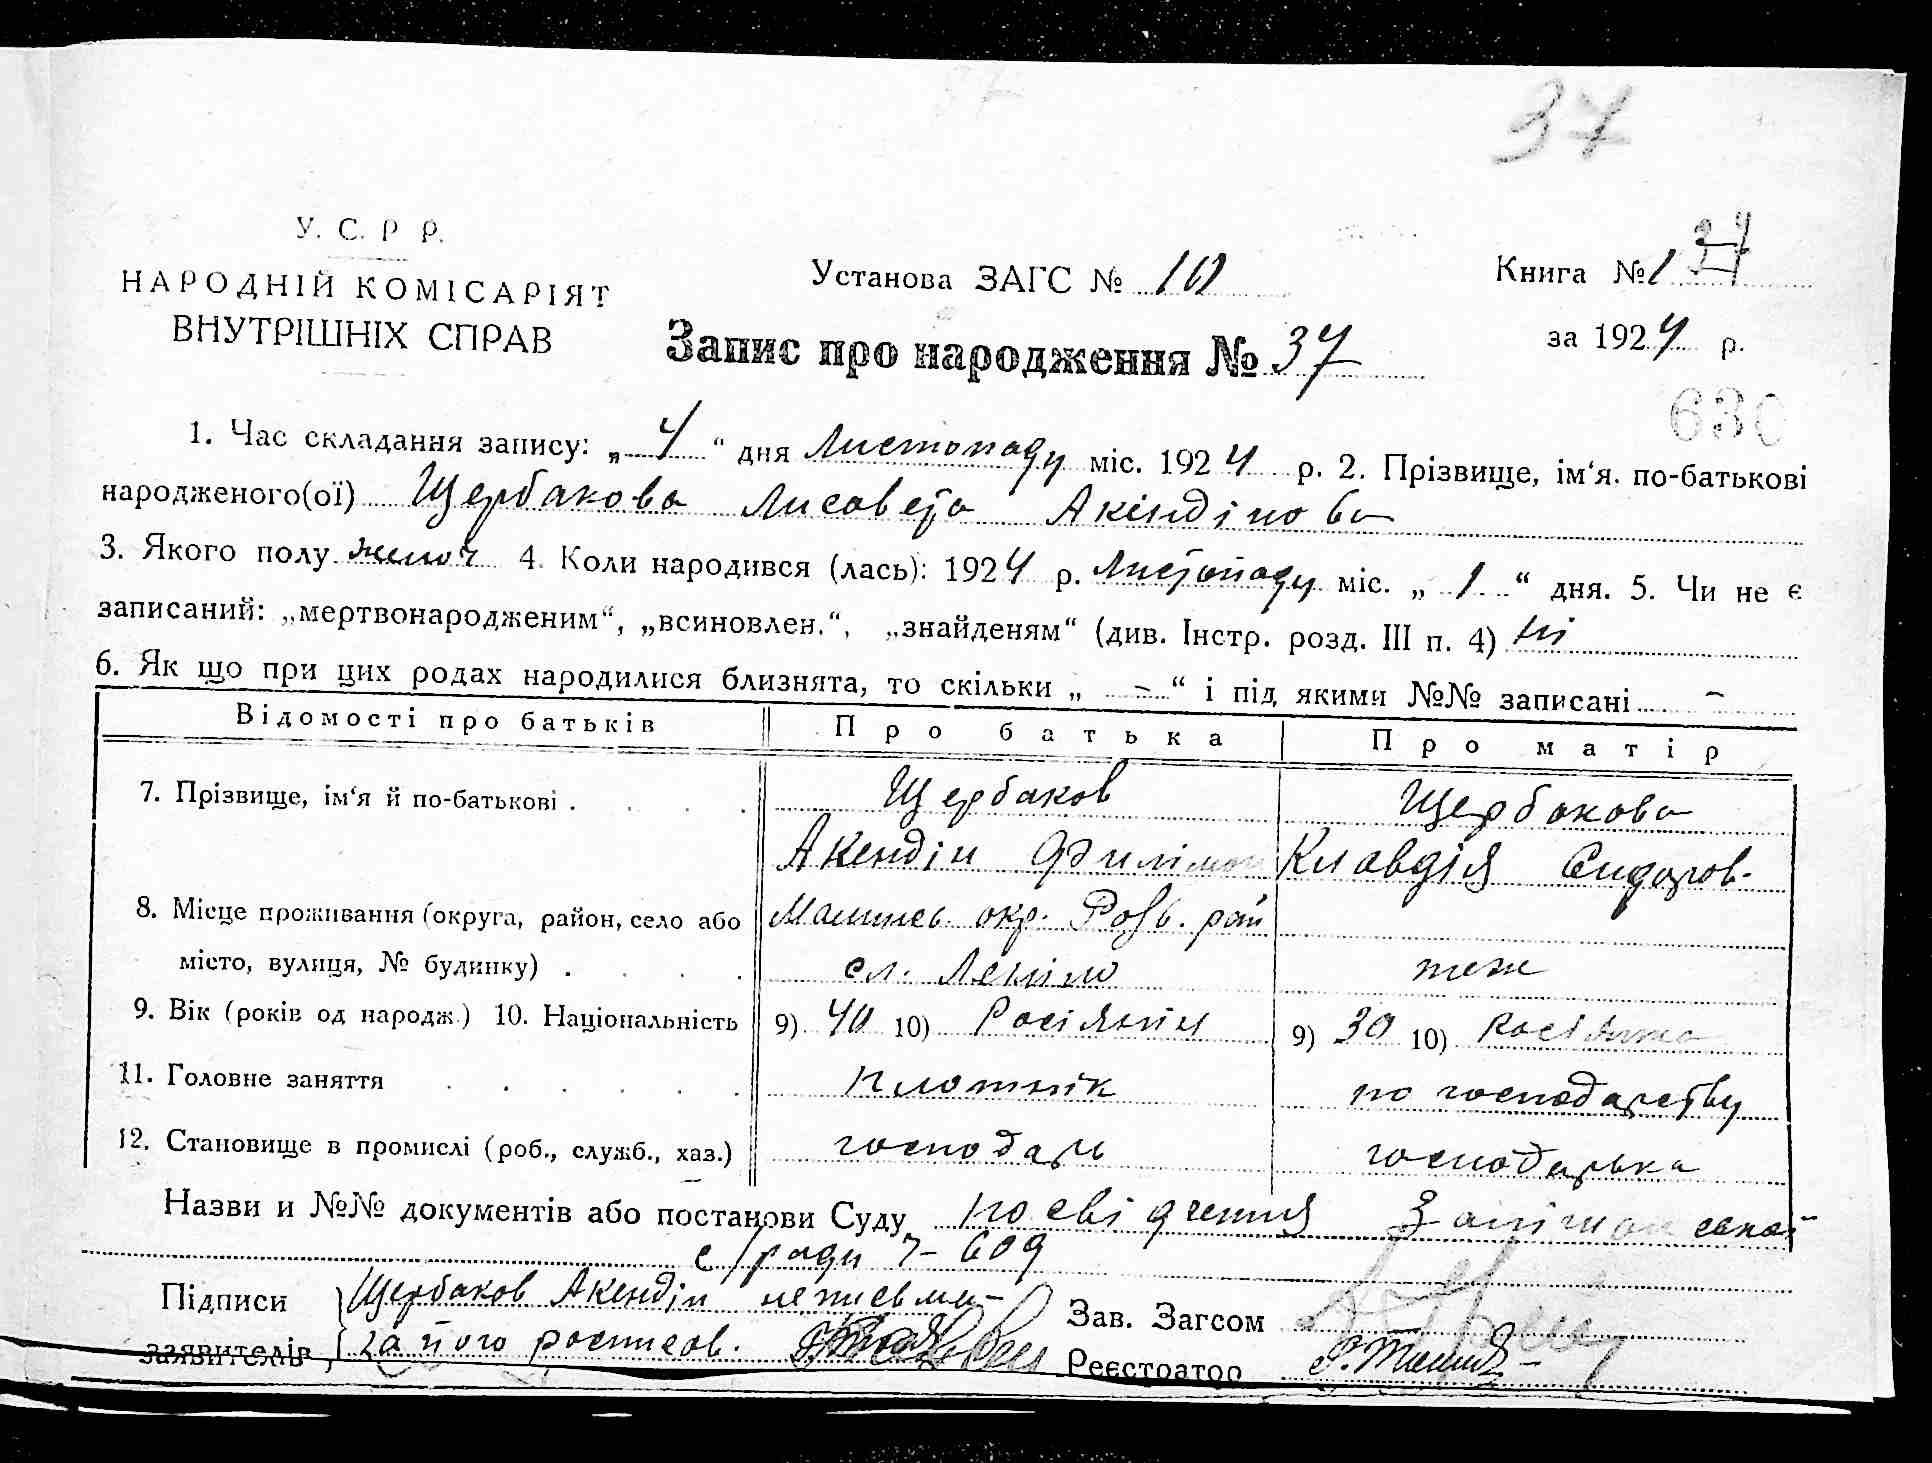 37
У. С. Р. Р.
НАРОДНІЙ КОМІСАРІЯТ
ВНУТРІШНІХ СПРАВ
Установа ЗАГС № 10
Книга № 1 37
за 1924 р.
Запис про народження № 37
630
1. Час складання запису: „ 4 “ дня Листопаду міс. 1924 р. 2. Прізвище, ім‘я. по-батькові
народженого(ої) Щербакова Лисавета Акіндінова
3. Якого полу жіноч 4. Коли народився (лась): 1924 р. Листопаду міс. „ 1 “ дня. 5. Чи не є
записаний: „мертвонародженим“, „всиновлен.“, „знайденям“ (див. Інстр. розд. III п. 4) ні
6. Як що при цих родах народилися близнята, то скільки „ – “ і під якими №№ записані –
Відомості про батьків Про батька Про матір
7. Прізвище, ім‘я й по-батькові . Щербаков Щербакова
Акендін Филімон Клавдія Сидоров.
8. Місце проживання (округа, район, село або окр. Розв. рай
місто, вулиця, № будинку) . сл. Леніно теж
9. Вік (років од народж.) 10. Національність 9) 40 10) Росіянін 9) 30 10) Росіянка
11. Головне заняття плотнік по господарству
12. Становище в промислі (роб., служб., хаз.) господарь господарька
Назви и №№ документів або постанови Суду посвідчення
с/ради 7-609
Підписи Щербаков Акендін неписьме- Зав. Загсом
заявителів за його росписов. Реєстратор